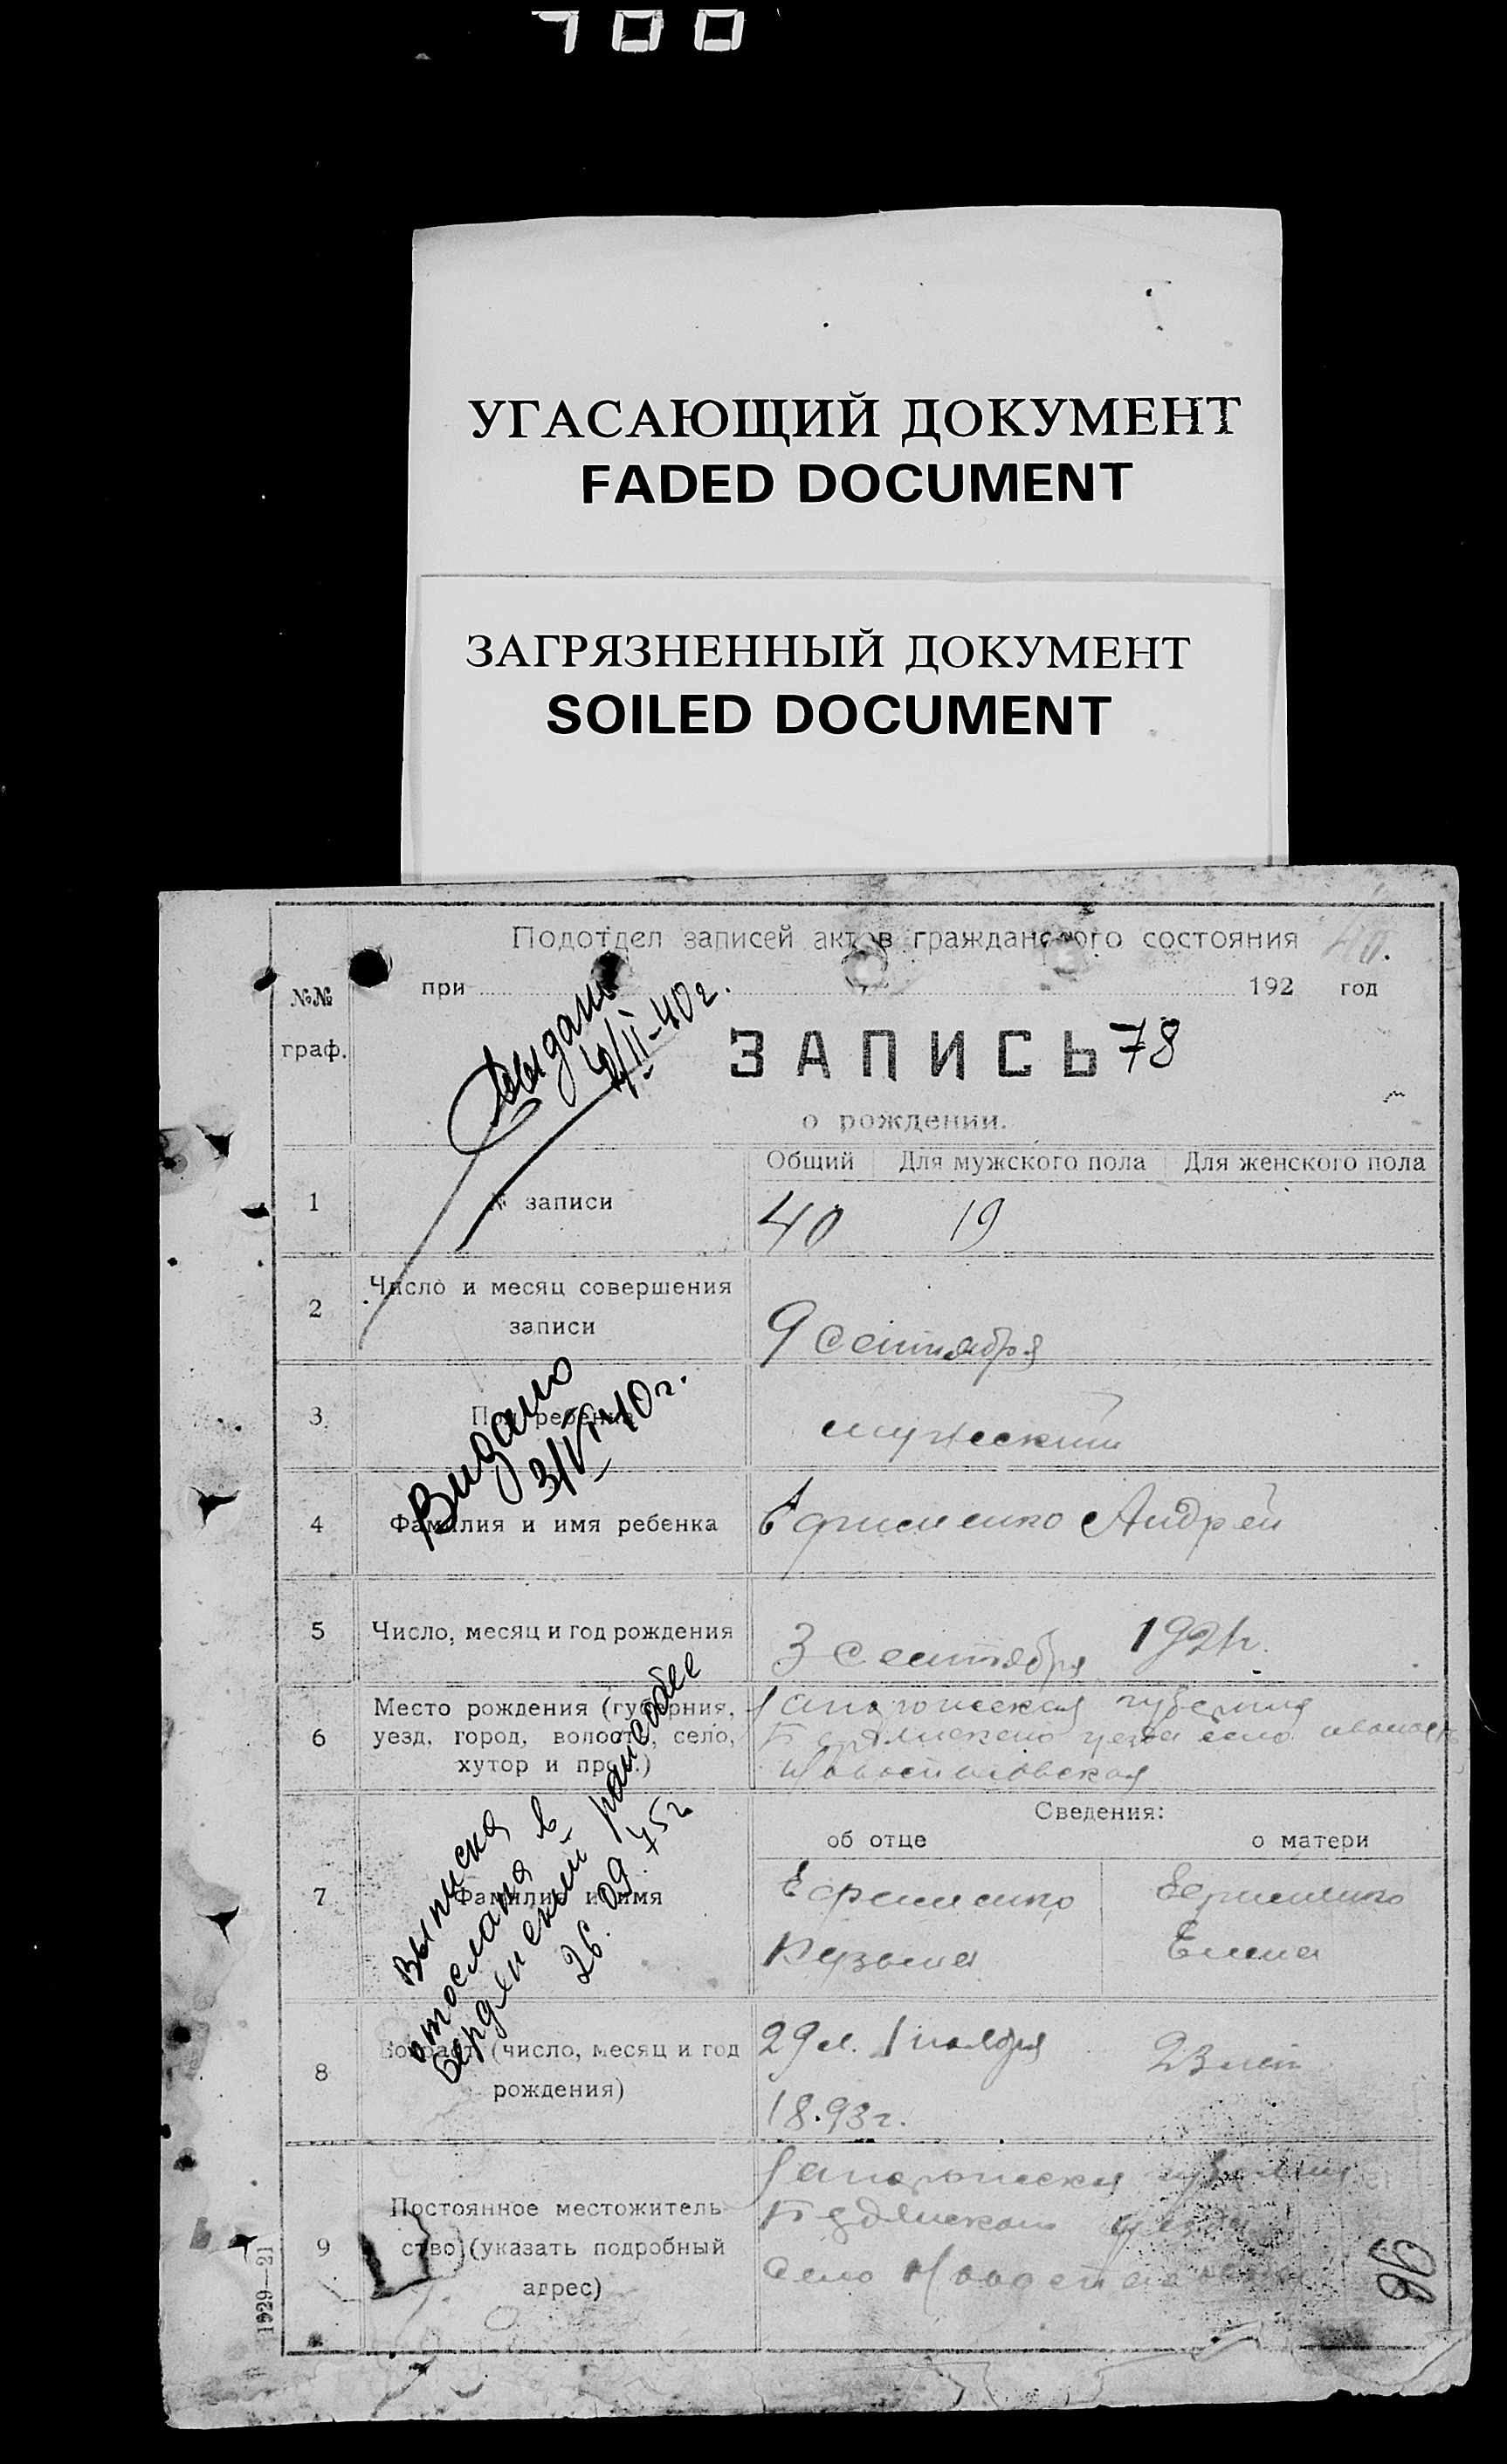 700
УГАСАЮЩИЙ ДОКУМЕНТ
FADED DOCUMENT
ЗАГРЯЗНЕННЫЙ ДОКУМЕНТ
SOILED DOCUMENT
Подотдел записей актов гражданского состояния
№№
граф.
при 192 год
Выдано
ЗАПИСЬ 78
о рождении.
Общий Для мужского пола Для женского пола
1 № записи 40 19
2 Число и месяц совершения
записи
9 сентября
Видано
3/VI-40 г.
3 Пол ребенка мужеский
4 Фамилия и имя ребенка Ефименко Андрей
5 Число, месяц и год рождения 3 сентября 1921 г.
6 Место рождения (губерния,
уезд, город, волость, село,
хутор и проч.)
Запорожская губерния
Бердянского уезда село
Новоспасовская
Выписка
отослана в
Бердянский райсобес
26.09.75г
Сведения:
об отце о матери
7 Фамилия и имя
Ефименко Ефименко
Кузьма Елена
8 Возраст (число, месяц и год
рождения)
29 л. 1 ноября 23 лет
1893 г.
9 Постоянное местожитель-
ство (указать подробный
адрес)
Запорожская губерния
Бердянского уезда
село
96
1929—21